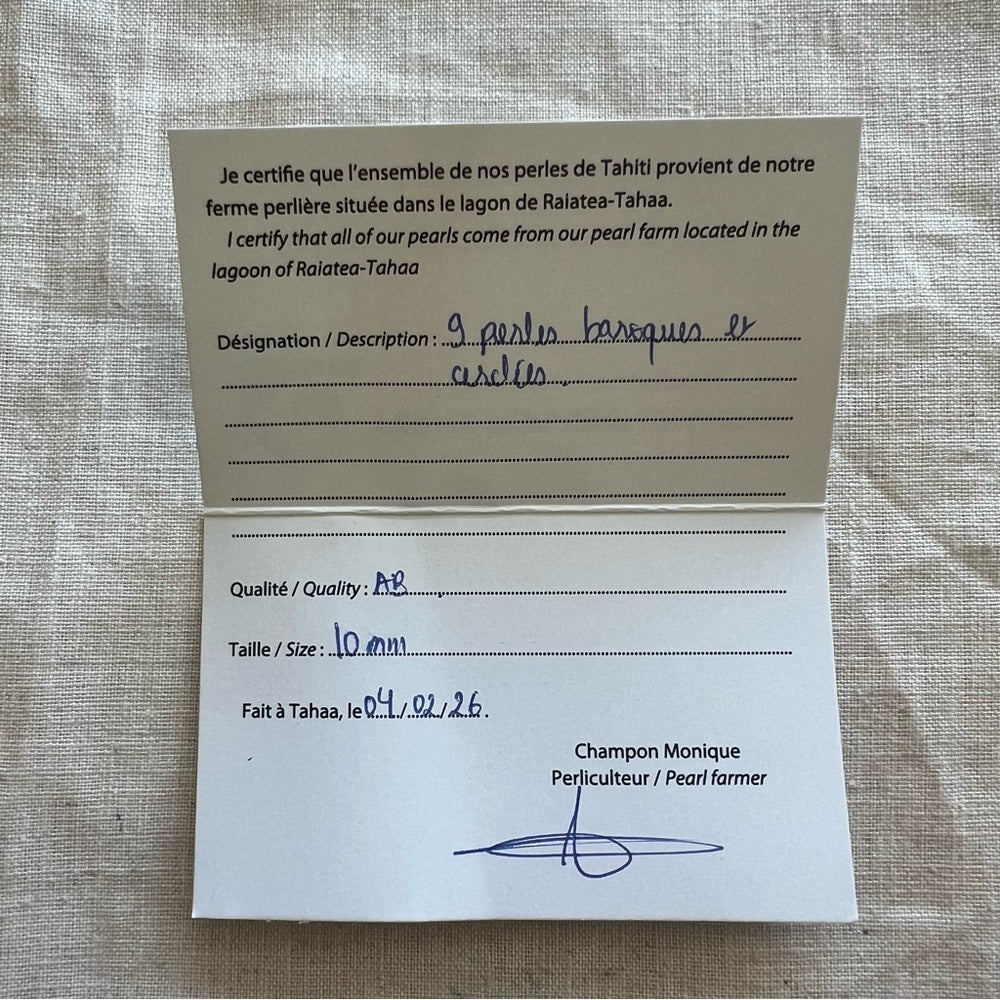 Je certifie que l'ensemble de nos perles de Tahiti provient de notre
ferme perlière située dans le lagon de Raiatea-Tahaa.
I certify that all of our pearls come from our pearl farm located in the
lagoon of Raiatea-Tahaa
Désignation / Description : 9 perles baroques et
cerclées.
Qualité / Quality : AB
Taille / Size : 10 mm
Fait à Tahaa, le 04/02/26.
Champon Monique
Perliculteur / Pearl farmer